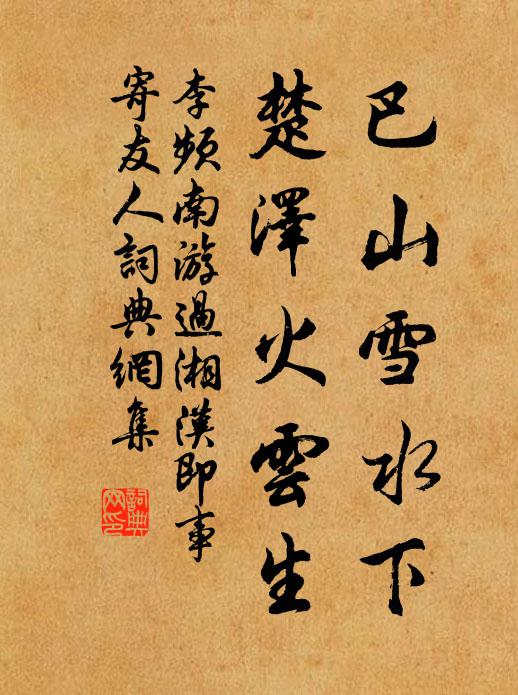 巴山雪水下
楚澤火雲生
李頻南游過湘漢即事
寄友人詞典網集
詞典网印